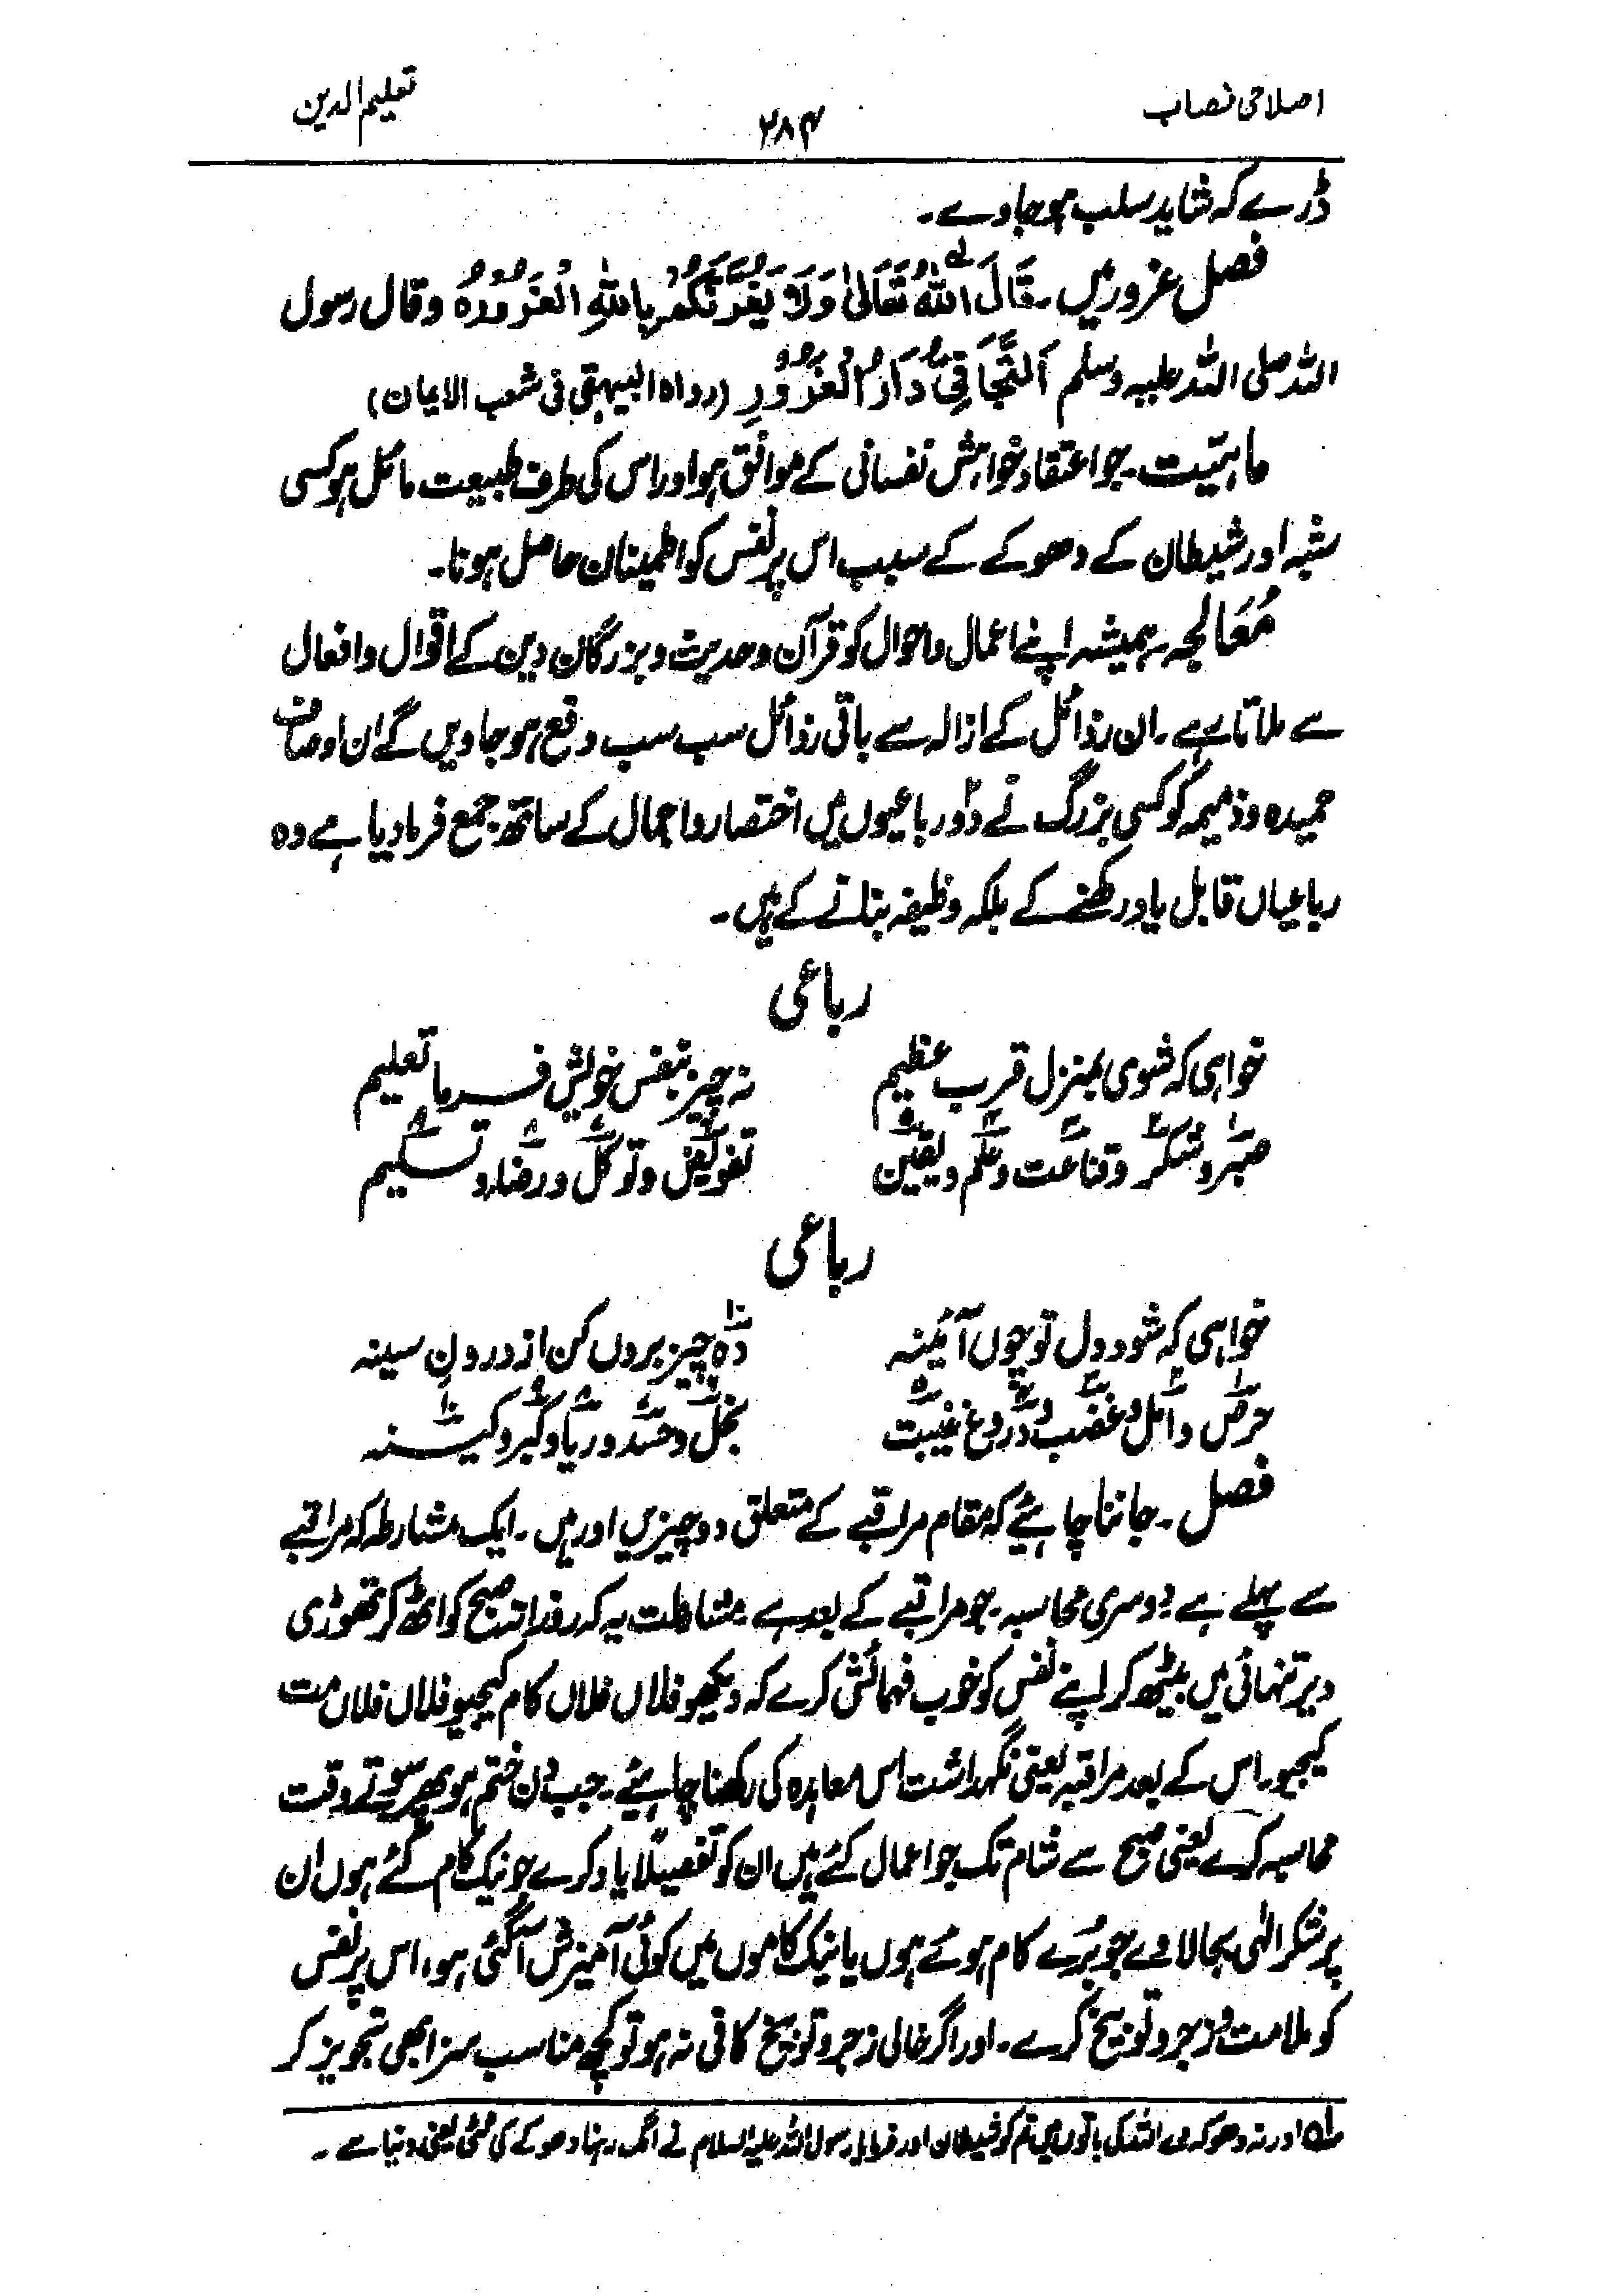 اصلاحی نصاب
۲۸۴
تعلیم الدین
ڈرے کہ شاید سلب ہو جاوے۔
فصل غرور میں۔ قَالَ اللّٰهُ تَعَالٰى وَلَا يَغُرَّنَّكُمْ بِاللّٰهِ الْغَرُوْرُ ۵ وقال رسول
اللہ صلی اللہ علیہ وسلم اَلتَّجَافِيْ دَارُ الْغُرُوْرِ (رواہ البیہقی فی شعب الایمان)
ماہیّت۔ جو اعتقاد خواہش نفسانی کے موافق ہو اور اس کی طرف طبیعت مائل ہو کسی
شبہ اور شیطان کے دھوکے کے سبب اس پر نفس کو اطمینان حاصل ہونا۔
مُعَالجہ۔ ہمیشہ اپنے اعمال و احوال کو قرآن و حدیث و بزرگان دین کے اقوال و افعال
سے ملاتا رہے۔ ان رذائل کے ازالہ سے باقی رذائل سب سب دفع ہو جاویں گے ان اوصاف
حمیدہ و ذمیمہ کو کسی بزرگ نے دو رباعیوں میں اختصار و اجمال کے ساتھ جمع فرما دیا ہے وہ
رباعیاں قابل یاد رکھنے کے بلکہ وظیفہ بنانے کے ہیں۔
رباعی
خواہی کہ شوی بمنزل قرب عظیم نہ چیز بنفس خویش فرما تعلیم
صبر و شکر و قناعت و علم و یقین تفویض و توکل و رضا و تسلیم
رباعی
خواہی کہ شود دل تو چوں آئینہ دہ چیز بروں کن از درون سینہ
حرص و امل و غضب و دروغ غیبت بخل و حسد و ریا و کبر و کینہ
فصل۔ جاننا چاہیئے کہ مقام مراقبے کے متعلق دو چیزیں اور ہیں۔ ایک مشارطہ کہ مراقبے
سے پہلے ہے دوسری محاسبہ۔ جو مراقبے کے بعد ہے مشارطت یہ کہ روزانہ صبح کو اٹھ کر تھوڑی
دیر تنہائی میں بیٹھ کر اپنے نفس کو خوب فہمائش کرے کہ دیکھو فلاں فلاں کام کیجیو فلاں فلاں مت
کیجیو۔ اس کے بعد مراقبہ یعنی نگہداشت اس معاہدہ کی رکھنا چاہیئے۔ جب دن ختم ہو پھر سوتے وقت
محاسبہ کرے یعنی صبح سے شام تک جو اعمال کئے ہیں ان کو تفصیلاً یاد کرے جو نیک کام کئے ہوں ان
پر شکر الٰہی بجا لاوے جو بُرے کام ہوئے ہوں یا نیک کاموں میں کوئی آمیزش آگئی ہو، اس پر نفس
کو ملامت و زجر و توبیخ کرے۔ اور اگر خالی زجر و توبیخ کافی نہ ہو تو کچھ مناسب سزا بھی تجویز کر
اور نہ دھوکہ دے اللہ کی باتوں میں تم کو شیطان اور فرمایا رسول اللہ علیہ السلام نے الگ رہنا دھوکے کی ٹٹی یعنی دنیا سے۔